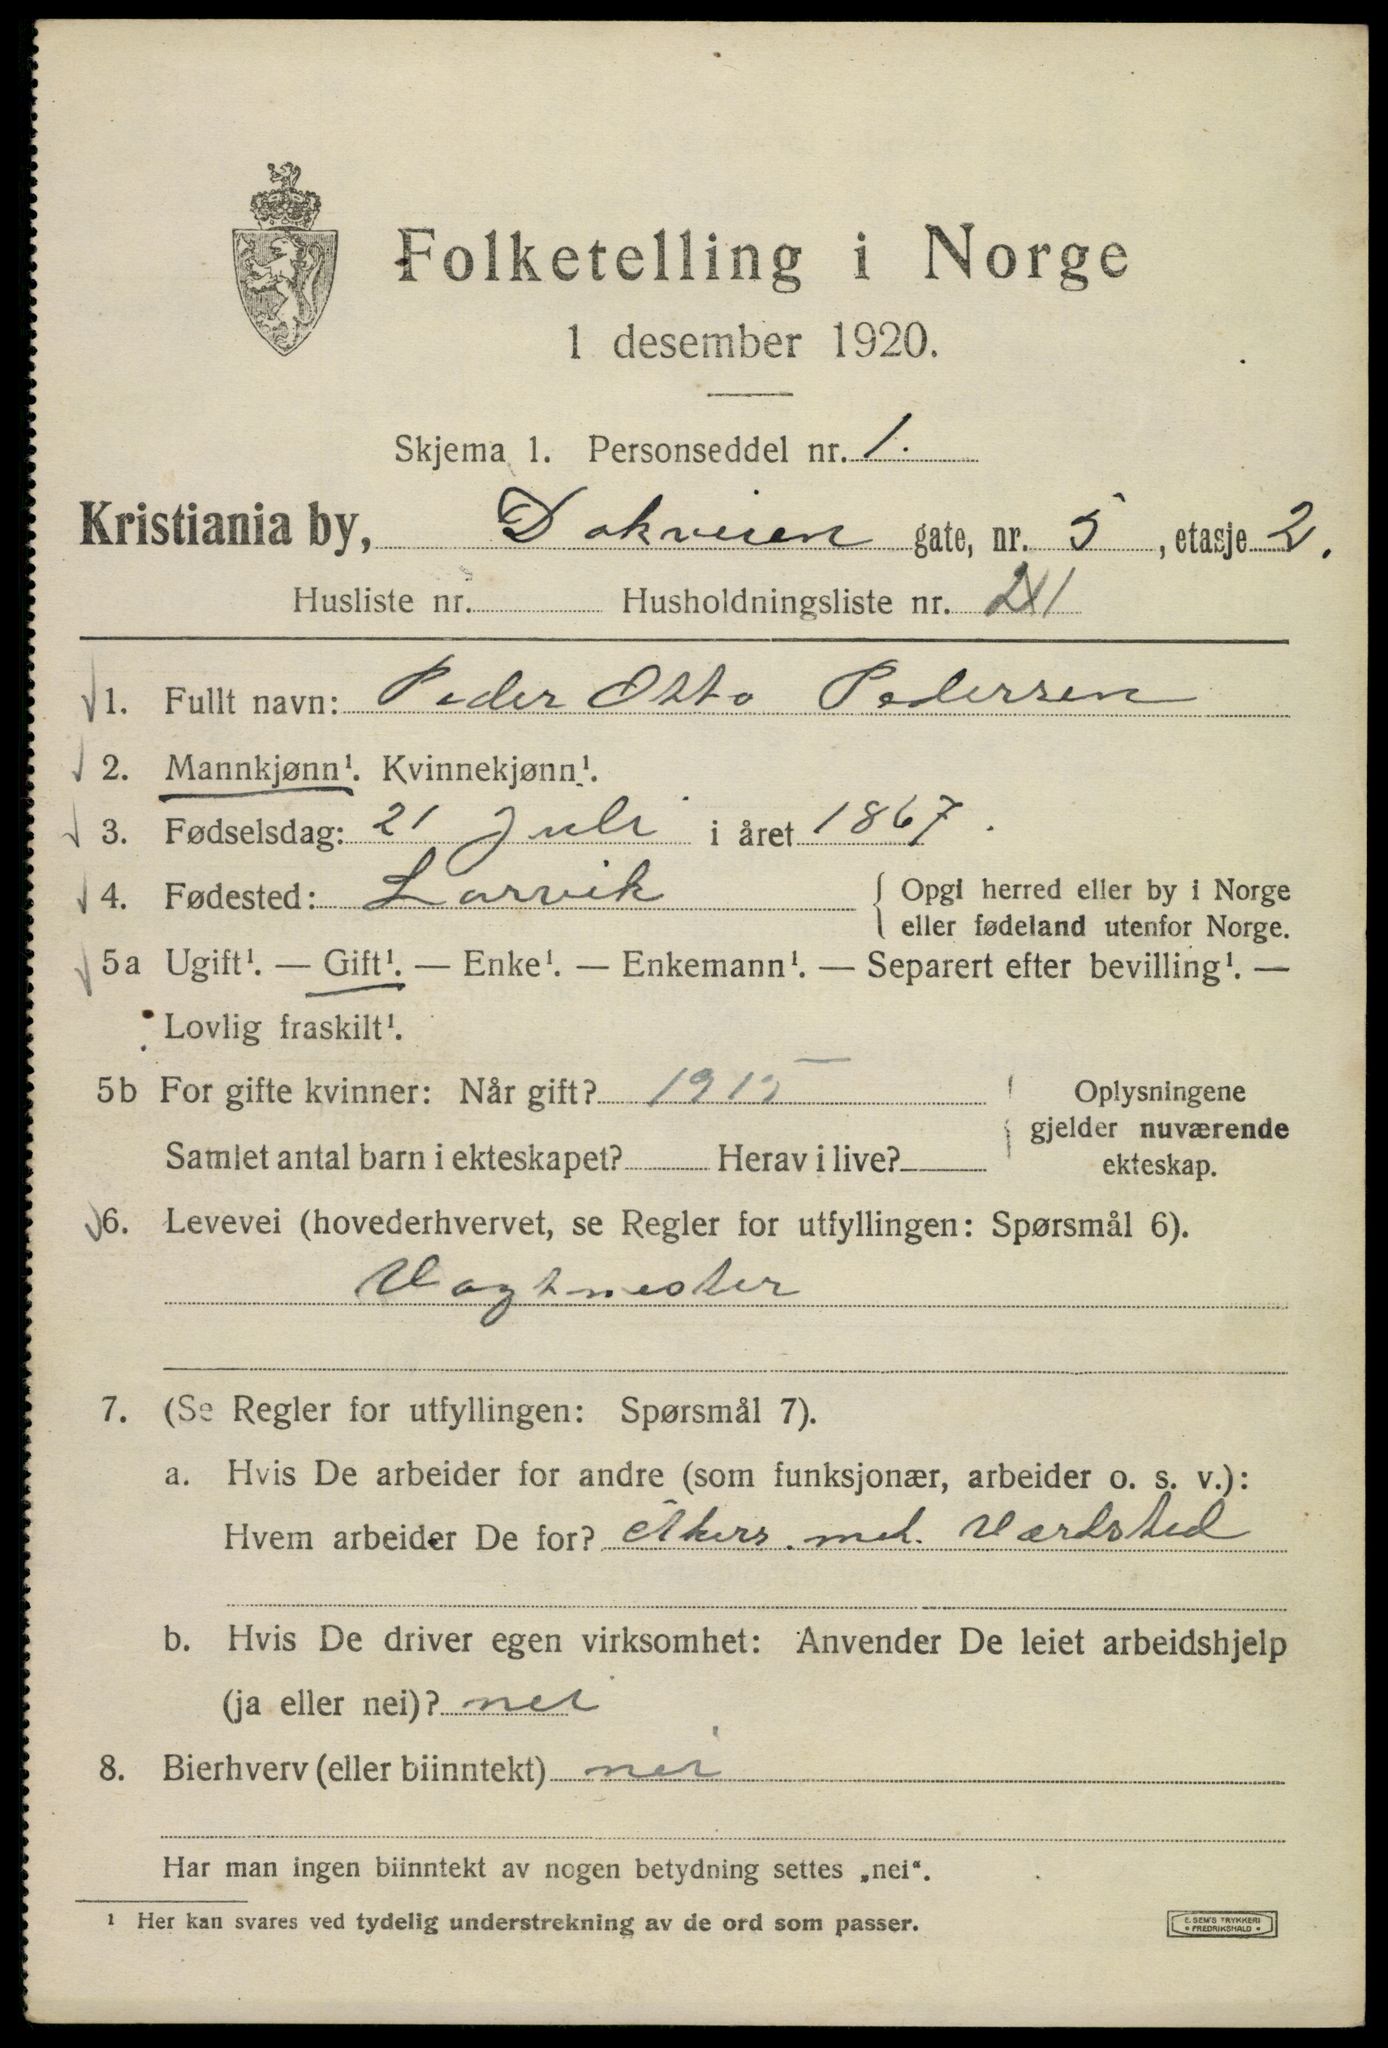 Folketelling i Norge
1 desember 1920.
Skjema 1. Personseddel nr. 1.
Kristiania by, Dokveien gate, nr. 5, etasje 2.
Husliste nr. Husholdningsliste nr.
1. Fullt navn: Peder Otto Pedersen
2. Mannkjønn¹. Kvinnekjønn¹.
3. Fødselsdag: 21 Juli i året 1867.
4. Fødested: Larvik { Opgi herred eller by i Norge
eller fødeland utenfor Norge.
5a Ugift¹. — Gift¹. — Enke¹. — Enkemann¹. — Separert efter bevilling¹. —
Lovlig fraskilt¹.
5b For gifte kvinner: Når gift? 1915 Oplysningene
gjelder nuværende
Samlet antal barn i ekteskapet? Herav i live? ekteskap.
6. Levevei (hovederhvervet, se Regler for utfyllingen: Spørsmål 6).
Vagtmester
7. (Se Regler for utfyllingen: Spørsmål 7).
a. Hvis De arbeider for andre (som funksjonær, arbeider o. s. v.):
Hvem arbeider De for? Akers mek. Værksted
b. Hvis De driver egen virksomhet: Anvender De leiet arbeidshjelp
(ja eller nei)? nei
8. Bierhverv (eller biinntekt) nei
Har man ingen biinntekt av nogen betydning settes „nei“.
¹ Her kan svares ved tydelig understrekning av de ord som passer.
E. SEM'S TRYKKERI
FREDRIKSHALD